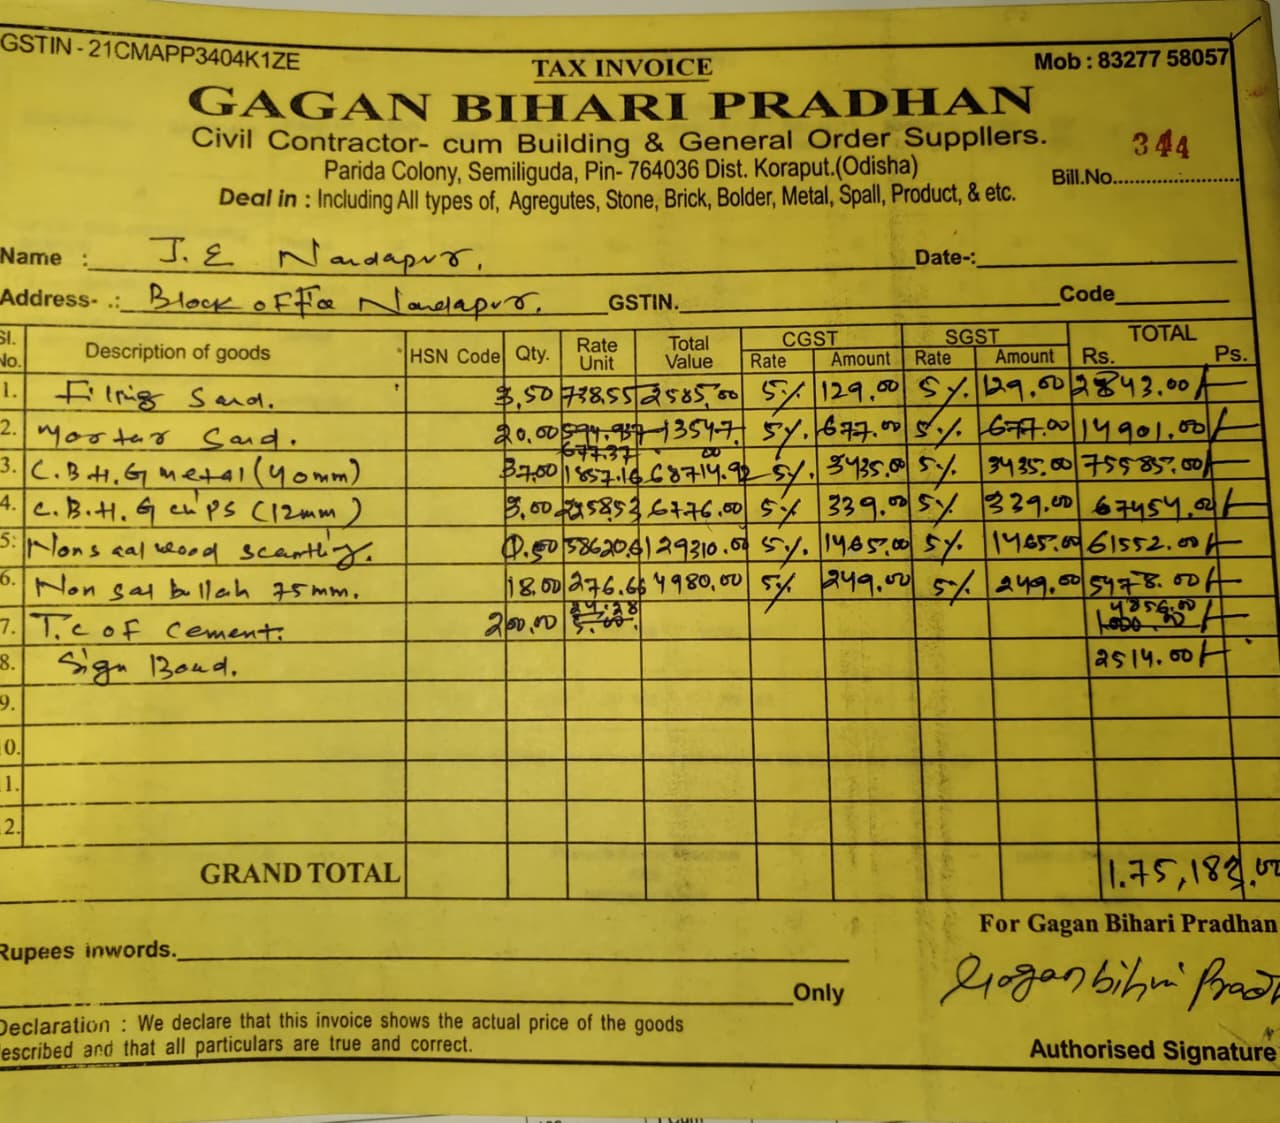 GSTIN - 21CMAPP3404K1ZE
TAX INVOICE
Mob : 83277 58057
GAGAN BIHARI PRADHAN
Civil Contractor- cum Building & General Order Suppllers.
Parida Colony, Semiliguda, Pin- 764036 Dist. Koraput.(Odisha)
Deal in : Including All types of, Agregutes, Stone, Brick, Bolder, Metal, Spall, Product, & etc.
344
Bill.No.
Name : J.E Nandapur. Date-:
Address- .: Block office Nandapur. GSTIN. Code
Sl. No. Description of goods HSN Code Qty. Rate Unit Total Value CGST Rate Amount SGST Rate Amount TOTAL Rs. Ps.
1. Filing Sand. 3.50 738.55 2585.00 5% 129.00 5% 129.00 2843.00
2. Mortar Sand. 20.00 677.37 13547.00 5% 677.00 5% 677.00 14901.00
3. C.B.H.G metal (40mm) 37.00 1857.16 68714.92 5% 3435.00 5% 3435.00 75585.00
4. C.B.H.G chips (12mm) 3.00 2258.53 6776.00 5% 339.00 5% 339.00 67454.00
5. Non sal wood scantling. 0.50 58620.61 29310.00 5% 1465.00 5% 1465.00 61552.00
6. Non sal bullah 75mm. 18.00 276.66 4980.00 5% 249.00 5% 249.00 5478.00
7. T.C of Cement. 200.00 24.28 4856.00
8. Sign Board. 2514.00
9.
0.
1.
2.
GRAND TOTAL 1.75,183.00
For Gagan Bihari Pradhan
Rupees inwords.
Gagan bihari Prad
Only
Declaration : We declare that this invoice shows the actual price of the goods
escribed and that all particulars are true and correct.
Authorised Signature